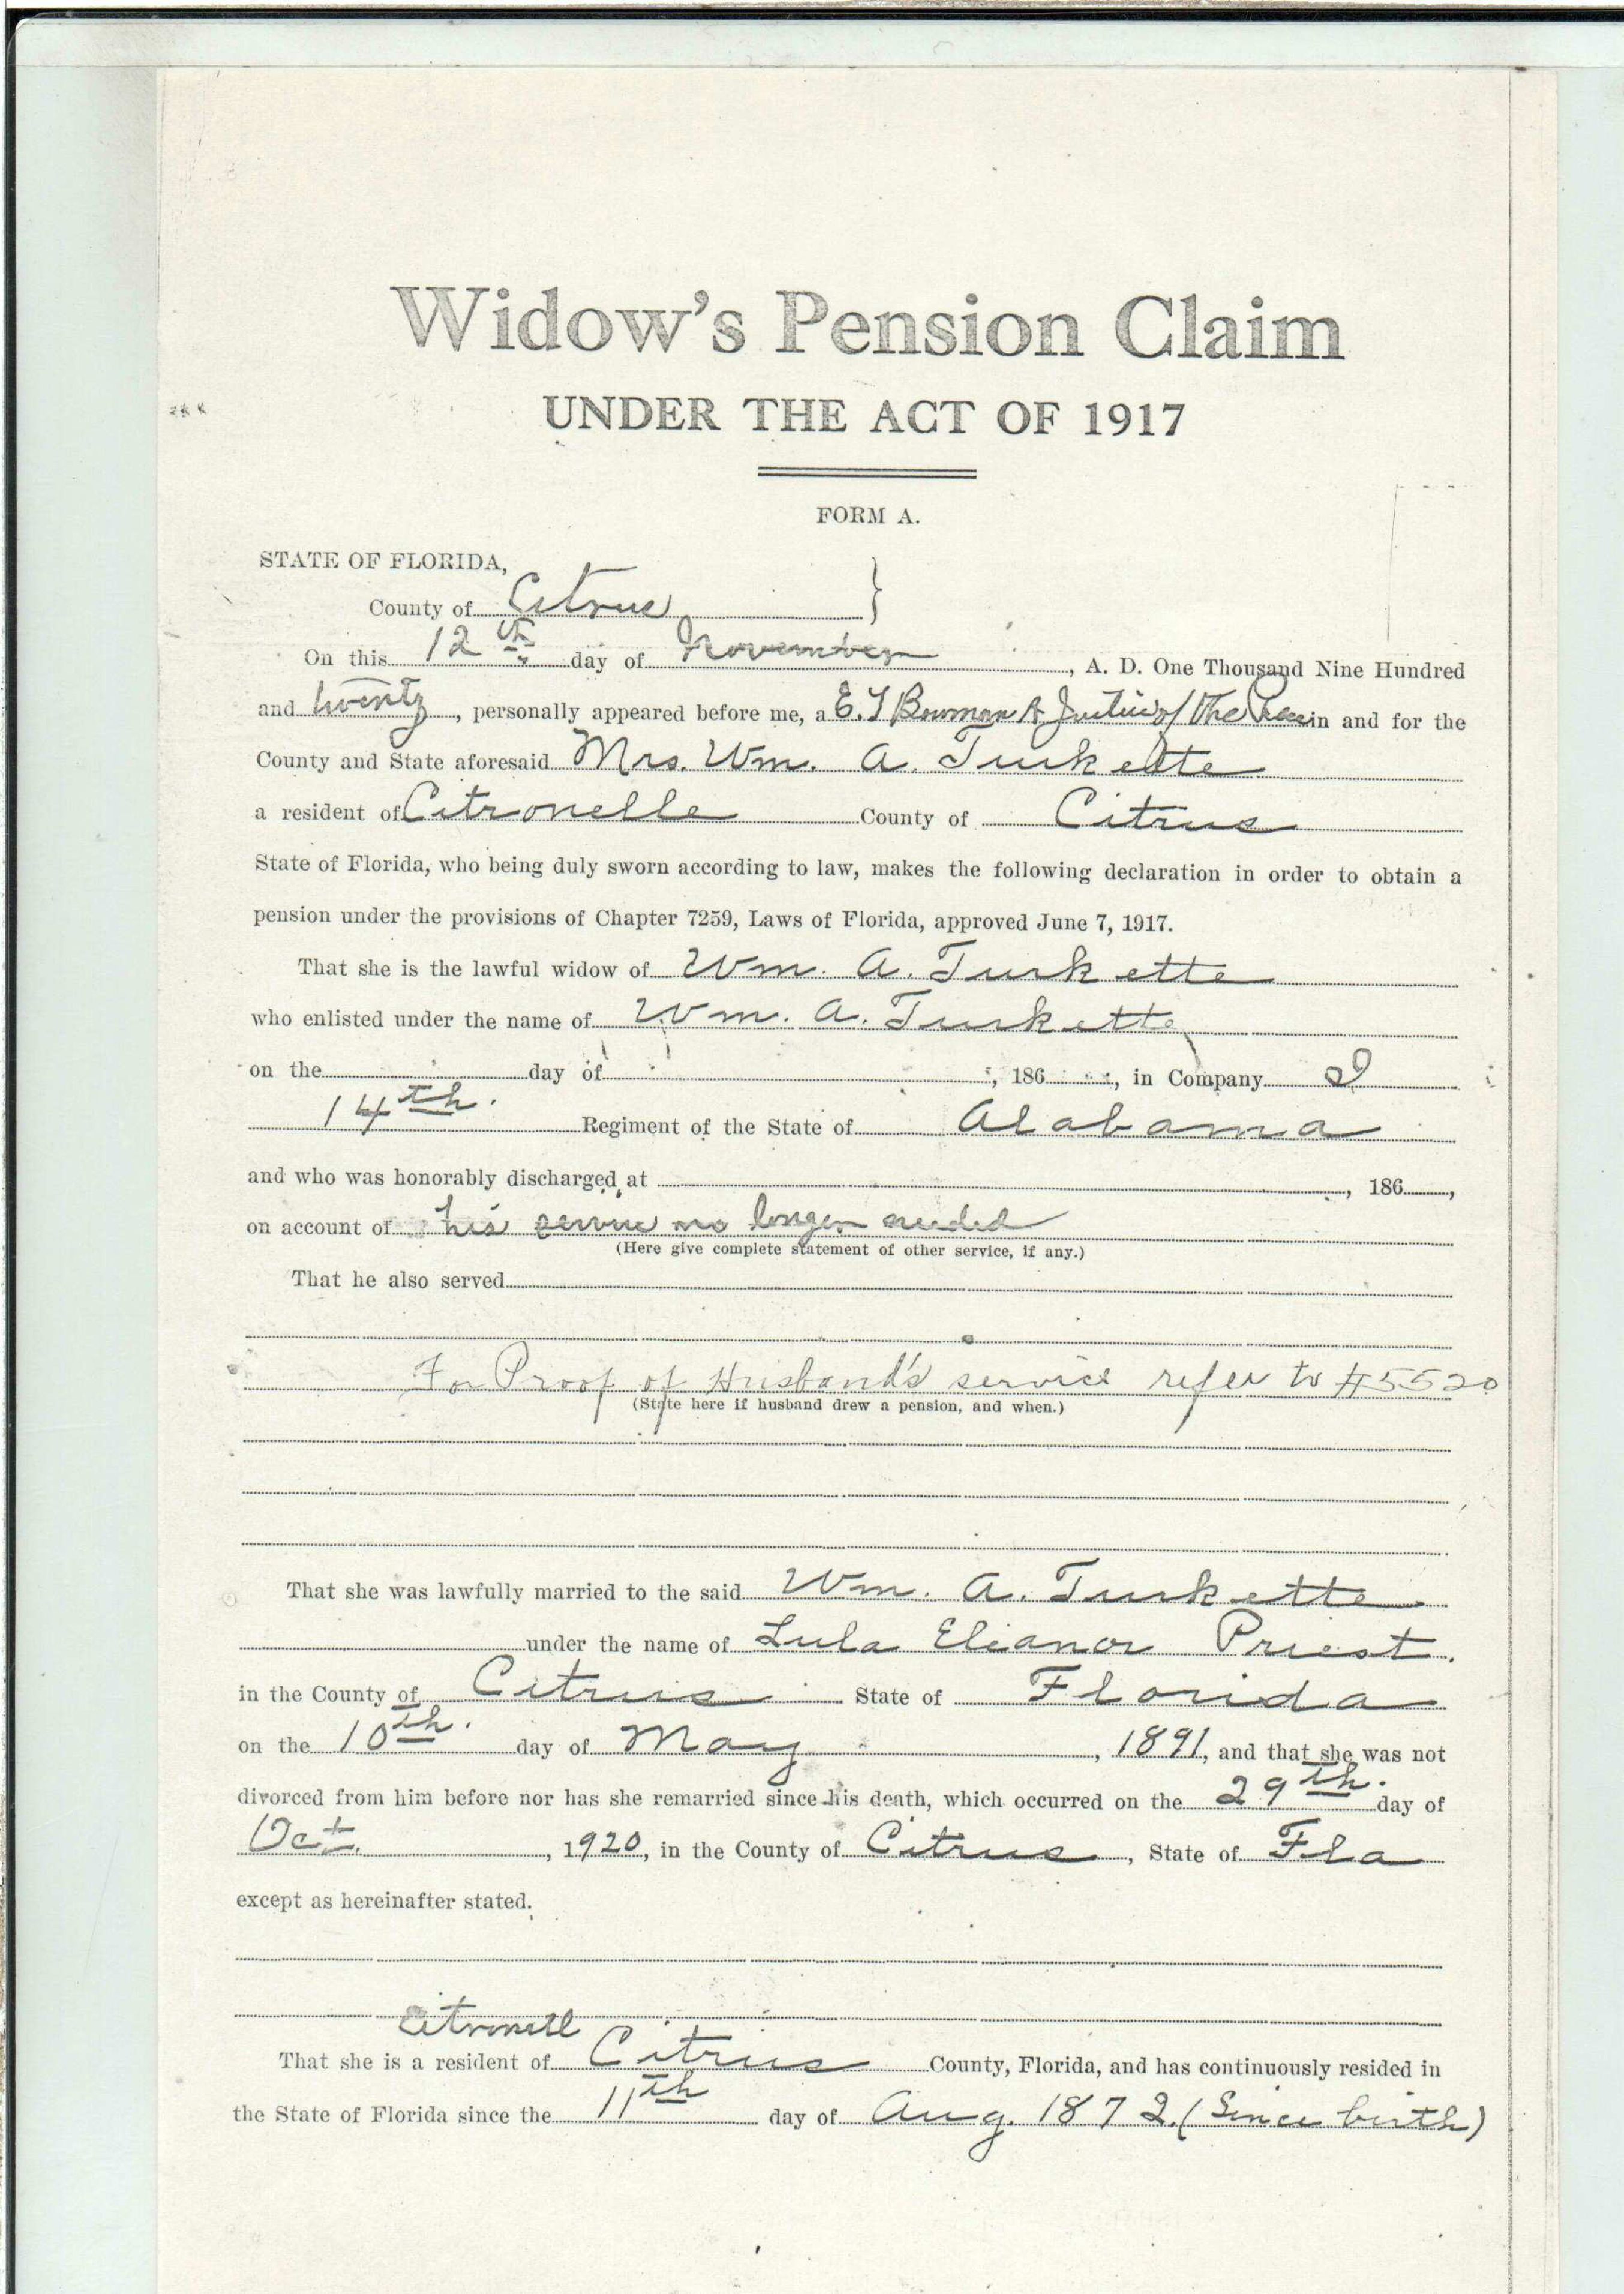 Widow's Pension Claim
UNDER THE ACT OF 1917
FORM A.
STATE OF FLORIDA,
County of Citrus }
On this 12th day of November, A. D. One Thousand Nine Hundred
and twenty, personally appeared before me, a E. T Bowman A Justice of the Peace in and for the
County and State aforesaid Mrs. Wm. A. Turkette
a resident of Citronelle County of Citrus
State of Florida, who being duly sworn according to law, makes the following declaration in order to obtain a
pension under the provisions of Chapter 7259, Laws of Florida, approved June 7, 1917.
That she is the lawful widow of Wm. A. Turkette
who enlisted under the name of Wm. A. Turkette
on the day of , 186 , in Company
14th. Regiment of the State of Alabama
and who was honorably discharged at , 186 ,
on account of his service no longer needed
(Here give complete statement of other service, if any.)
That he also served
For Proof of Husband's service refer to #5520
(State here if husband drew a pension, and when.)
That she was lawfully married to the said Wm. A. Turkette
under the name of Lula Eleanor Priest.
in the County of Citrus State of Florida
on the 10th. day of May , 1891, and that she was not
divorced from him before nor has she remarried since his death, which occurred on the 29th. day of
Oct. , 1920, in the County of Citrus , State of Fla
except as hereinafter stated.
Citronell
That she is a resident of Citrus County, Florida, and has continuously resided in
the State of Florida since the 11th day of Aug. 1872. (Since birth)